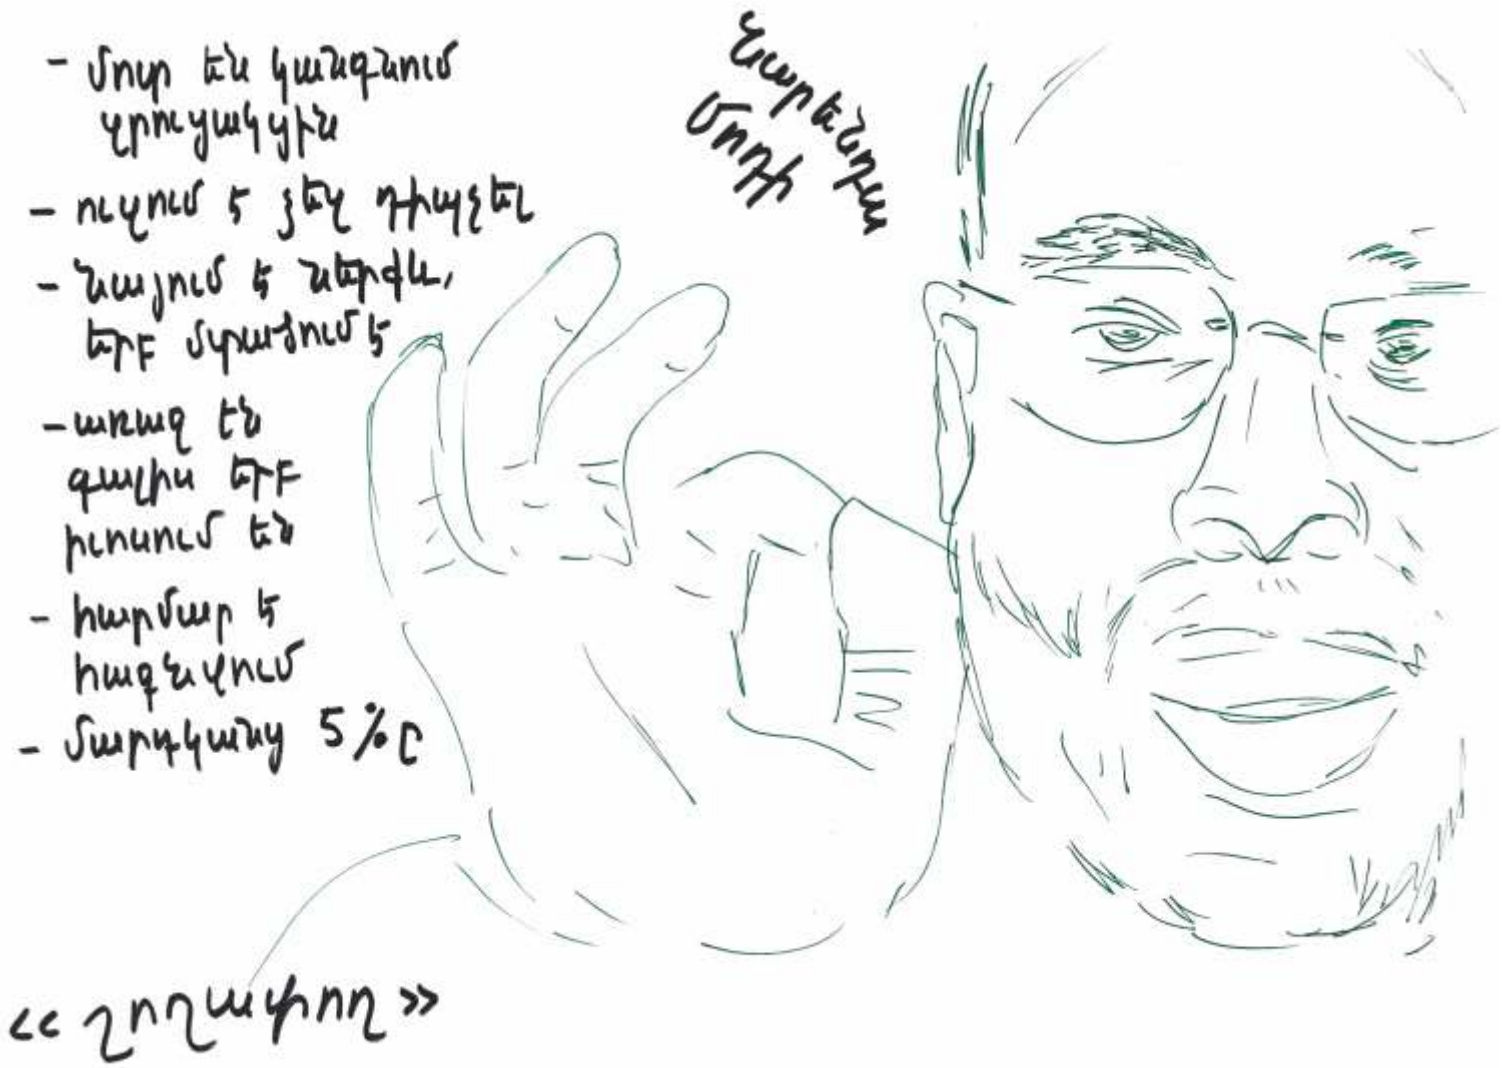 - մոտ են կանգնում
զրուցակցին
- ուզում է ձեզ դիպչել
- նայում է ներքև,
երբ մտածում է
- առագ են
գալիս երբ
խոսում են
- հարմար է
հագնվում
- մարդկանց 5%ը
Նարենդրա
Մոդի
<< շոշափող >>